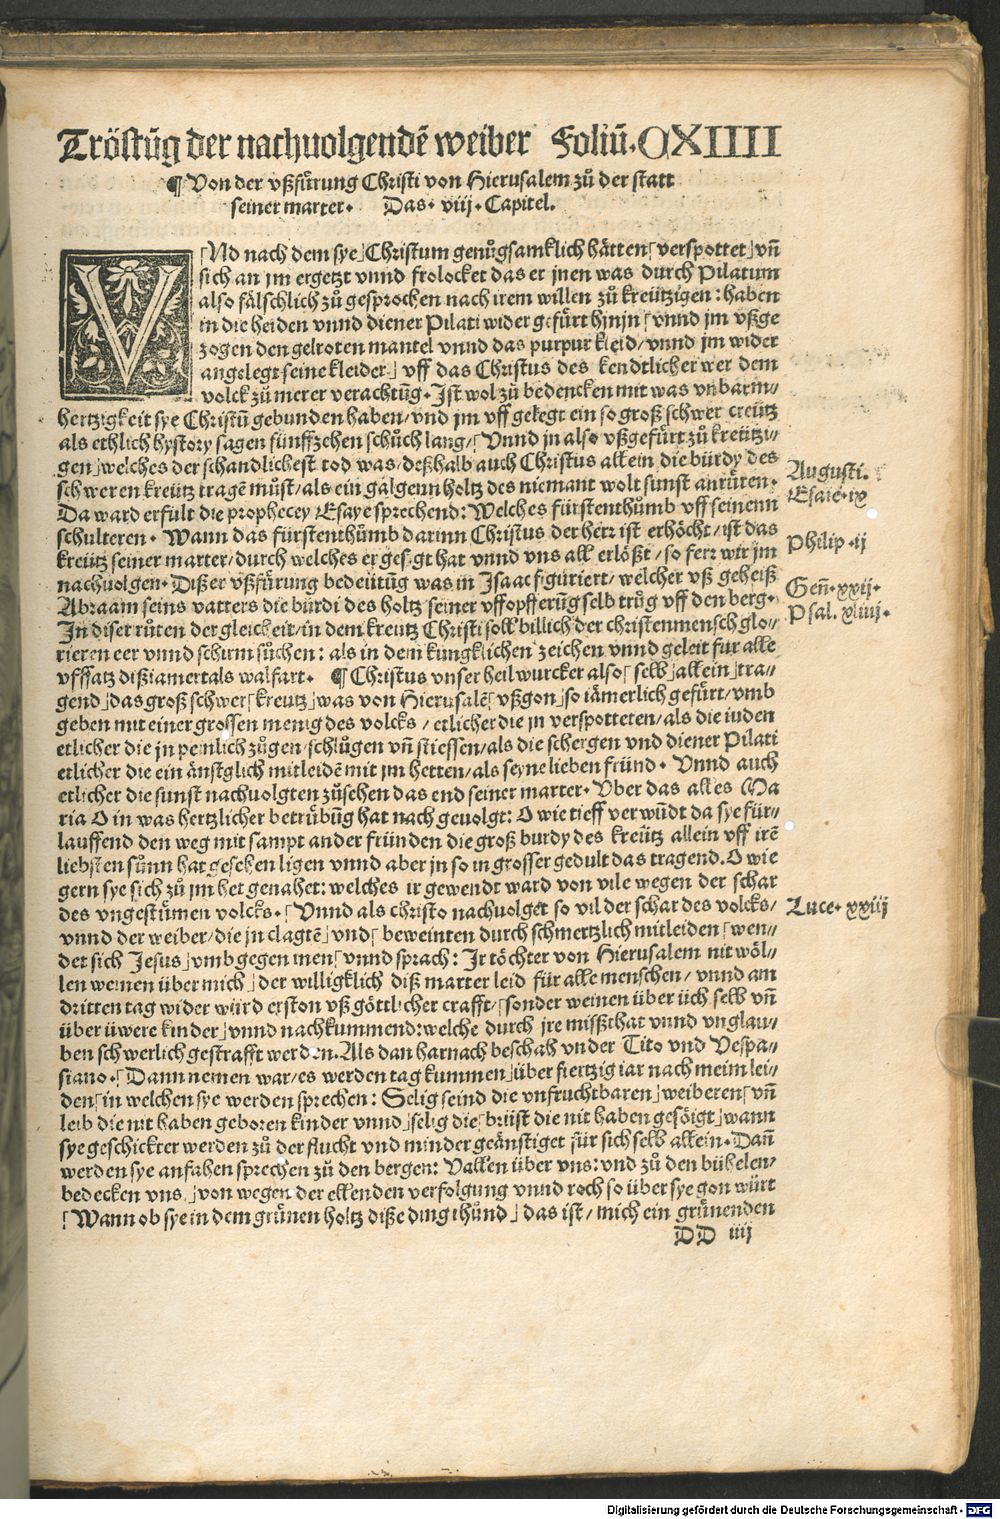 Tröstūg der nachuolgendē weiber Foliū. CXIIII
¶ Von der vßfürung Christi von Hierusalem zů der statt
seiner marter. Das. viij. Capitel.
V⌈Nd nach dem sye⌋ Christum genůgsamklich hätten ⌈verspottet⌋ vn̄
sich an jm ergetzt vnnd frolocket das er jnen was durch Pilatum
also fälschlich zů gesprochen nach irem willen zů kreützigen: haben
in die heiden vnnd diener Pilati wider gefürt hinjn ⌈vnnd jm vßge
zogen den gelroten mantel vnnd das purpur kleid/ vnnd jm wider
angelegt seine kleider⌋ vff das Christus des kendtlicher wer dem
volck zů merer verachtūg. Ist wol zů bedencken mit was vnbarm//
hertzigkeit sye Christū gebunden haben/ vnd jm vff gelegt ein so groß schwer creütz
als ethlich hystory sagen fünffzehen schůch lang/ ⌈Vnnd jn also vßgefürt zů kreützi//
gen⌋ welches der schandlichest tod was/ deßhalb auch Christus allein die bürdy des
schweren kreütz tragē můst/ als ein galgenn holtz des niemant wolt sunst anrüren.
Da ward erfült die prophecey Esaye sprechend: Welches fürstenthůmb vff seinenn
schulteren. Wann das fürstenthůmb darinn Christus der herr ist erhöcht/ ist das
kreütz seiner marter/ durch welches er gesigt hat vnnd vns all erlößt/ so ferr wir jm
nachuolgen. Dißer vßfürung bedeütūg was in Isaac figuriert/ welcher vß geheiß
Abraam seins vatters die bürdi des holtz seiner vffopfferūg selb trůg vff den berg.
In diser růten der gleicheit/ in dem kreutz Christi soll billich der christenmensch glo//
rieren eer vnnd schirm sůchen: als in dem küngklichen zeichen vnnd geleit für alle
vffsatz diß iamertals walfart. ¶ Christus vnser heilwurcker also ⌈selb⌋ allein⌋ tra//
gend⌋ das groß schwer ⌈kreutz⌋ was von Hierusalē ⌈vßgon⌋ so iämerlich gefürt/ vmb
geben mit einer grossen menig des volcks/ etlicher die jn verspotteten/ als die iuden
etlicher die jn peinlich zůgen/ schlůgen vn̄ stiessen/ als die schergen vnd diener Pilati
etlicher die ein änstglich mitleidē mit jm hetten/ als seyne lieben fründ. Vnnd auch
etlicher die sunst nachuolgten zůsehen das end seiner marter. Vber das alles Ma
ria O in was hertzlicher betrübūg hat nach geuolgt: O wie tieff verwūdt da sye für//
lauffend den weg mit sampt ander fründen die groß burdy des kreütz allein vff irē
liebsten sůnn hat gesehen ligen vnnd aber jn so in grosser gedult das tragend. O wie
gern sye sich zů jm het genahet: welches ir gewendt ward von vile wegen der schar
des vngestümen volcks. ⌈Vnnd als christo nachuolget so vil der schar des volcks/
vnnd der weiber/ die jn clagtē⌋ vnd ⌈beweinten durch schmertzlich mitleiden ⌈wen//
det sich Jesus⌋ vmb gegen inen ⌈vnnd sprach: Ir töchter von Hierusalem nit wöl//
len weinen über mich⌋ der willigklich diß marter leid für alle menschen/ vnnd am
dritten tag wider würd erston vß göttlicher crafft/ ⌈sonder weinen über üch selb vn̄
über üwere kinder⌋ vnnd nachkummend: welche durch jre mißthat vnnd vnglau//
ben schwerlich gestrafft werden. Als dan harnach beschah vnder Tito vnd Vespa//
siano. ⌈Dann nemen war/ es werden tag kummen⌋ über fiertzig iar nach meim lei//
den ⌈in welchen sye werden sprechen: Selig seind die vnfruchtbaren⌋ weiberen ⌈vn̄
leib die nit haben geboren kinder vnnd⌋ selig die ⌈brüst die nit haben gesöigt⌋ wann
sye geschickter werden zů der flucht vnd minder geänstiget für sich selb allein. Dan̄
werden sye anfahen sprechen zů den bergen: Vallen über vns: vnd zů den bühelen/
bedecken vns⌋ von wegen der ellenden verfolgung vnnd roch so über sye gon würt
⌈Wann ob sye in dem grünen holtz diße ding thůnd⌋ das ist/ mich ein grünenden
DD iiij
Augusti.
Esaie. ix
Philip. ij
Gen̄. xxij.
Psal. xliiij.
Luce. xxiij
Digitalisierung gefördert durch die Deutsche Forschungsgemeinschaft - DFG